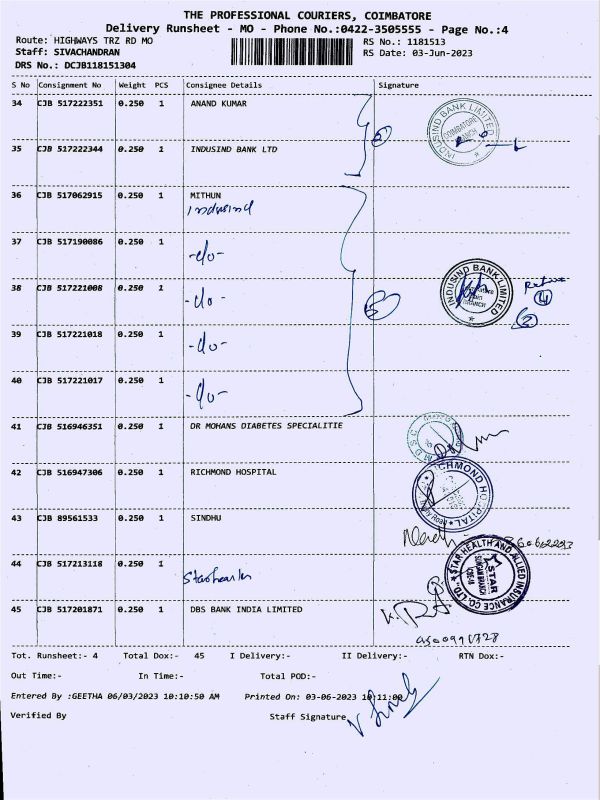 THE PROFESSIONAL COURIERS, COIMBATORE
Delivery Runsheet - MO - Phone No.:0422-3505555 - Page No.:4
Route: HIGHWAYS TRZ RD MO RS No.: 1181513
Staff: SIVACHANDRAN RS Date: 03-Jun-2023
DRS No.: DCJB118151304
S No Consignment No Weight PCS Consignee Details Signature
34 CJB 517222351 0.250 1 ANAND KUMAR
INDUSIND BANK LIMITED
COIMBATORE
BRANCH
35 CJB 517222344 0.250 1 INDUSIND BANK LTD
36 CJB 517062915 0.250 1 MITHUN
Indusind
37 CJB 517190086 0.250 1 -do-
38 CJB 517221008 0.250 1 -do-
INDUSIND BANK LIMITED
BRANCH
39 CJB 517221018 0.250 1 -do-
40 CJB 517221017 0.250 1 -do-
41 CJB 516946351 0.250 1 DR MOHANS DIABETES SPECIALITIE
42 CJB 516947306 0.250 1 RICHMOND HOSPITAL
RICHMOND HOSPITAL
43 CJB 89561533 0.250 1 SINDHU
44 CJB 517213118 0.250 1
STAR HEALTH AND ALLIED INSURANCE CO. LTD.
STAR
45 CJB 517201871 0.250 1 DBS BANK INDIA LIMITED
Tot. Runsheet:- 4 Total Dox:- 45 I Delivery:- II Delivery:- RTN Dox:-
Out Time:- In Time:- Total POD:-
Entered By :GEETHA 06/03/2023 10:10:50 AM Printed On: 03-06-2023 10:11:00
Verified By Staff Signature